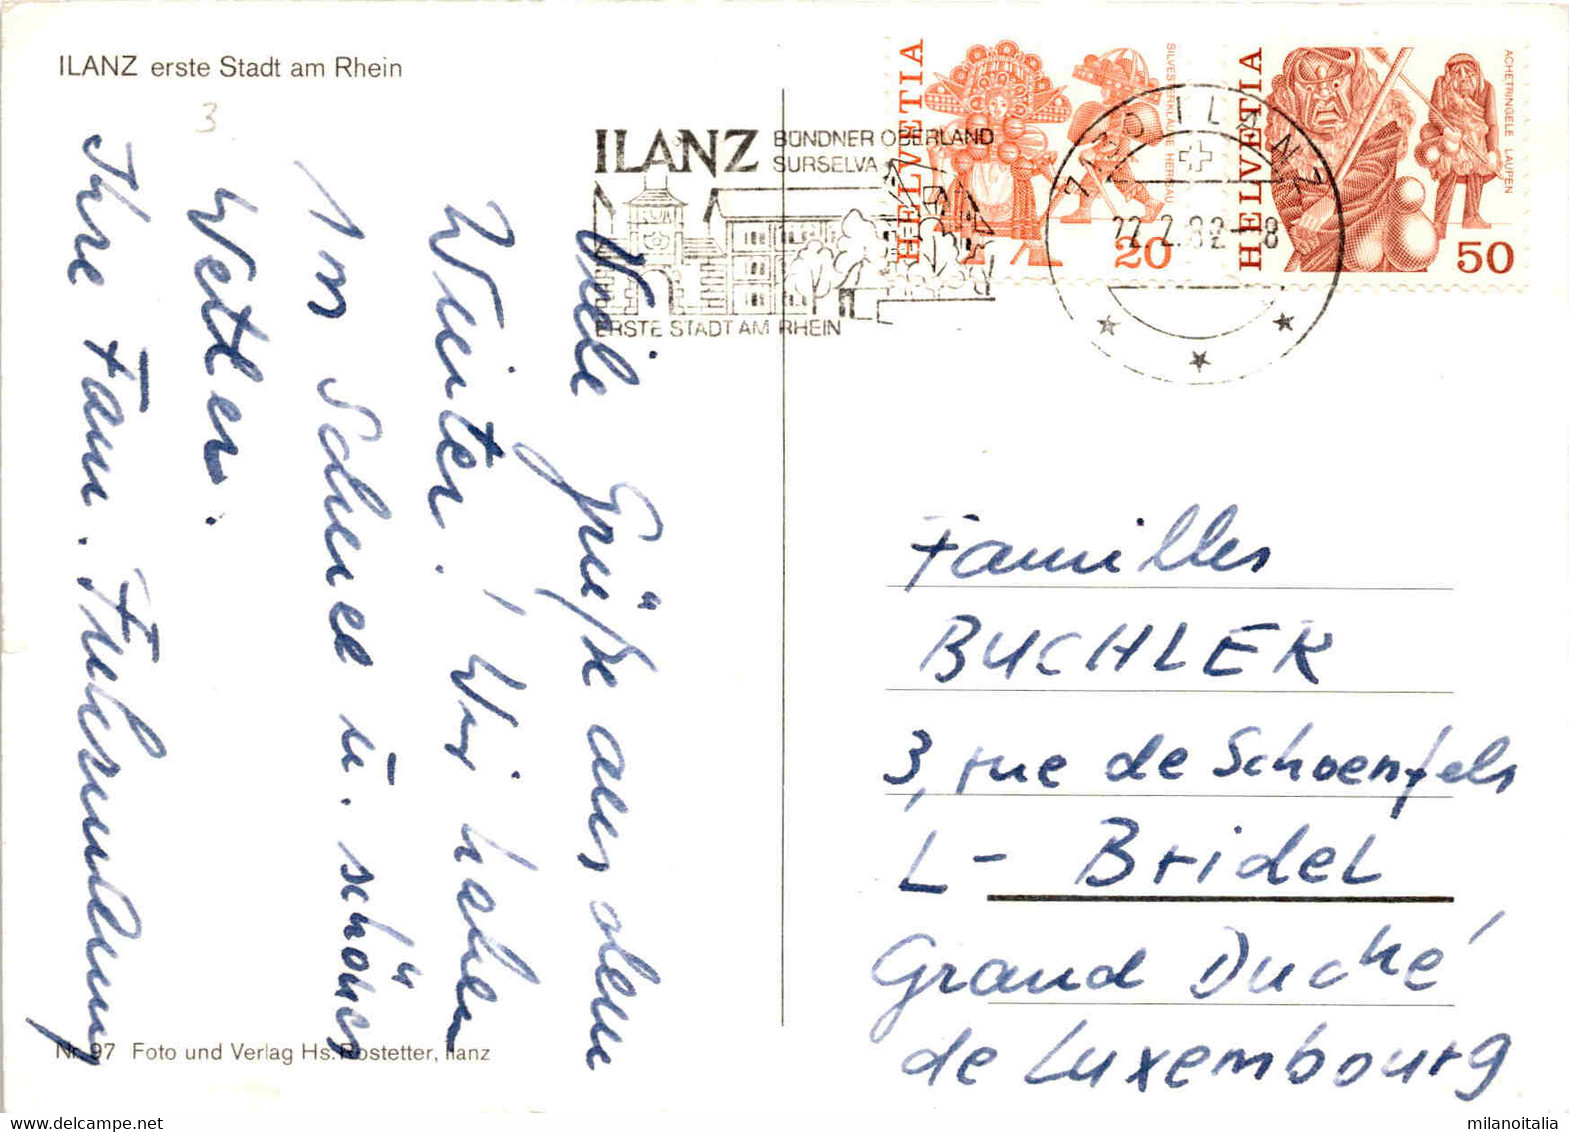 ILANZ erste Stadt am Rhein
3
Viele Grüße aus dem
Winter! Wir haben
1 m Schnee u. schönes
Wetter.
Ihre Fam.
Nr. 97 Foto und Verlag Hs. Rostetter, Ilanz
ILANZ BÜNDNER OBERLAND
SURSELVA
ERSTE STADT AM RHEIN
HELVETIA
SILVESTERKLÄUSE HERISAU
20
7130 ILANZ
22.2.82-18
HELVETIA
ACHETRINGELE LAUPEN
50
Familles
BUCHLER
3, rue de Schoenfels
L- Bridel
Grand Duché
de Luxembourg
milanoitalia